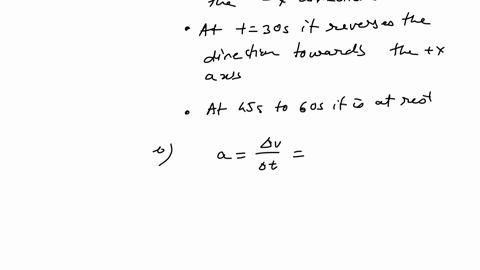 the
• At t=30s it reverses the
direction towards the +x
axis
• At 45s to 60s it is at rest
b) a = Δv/Δt =